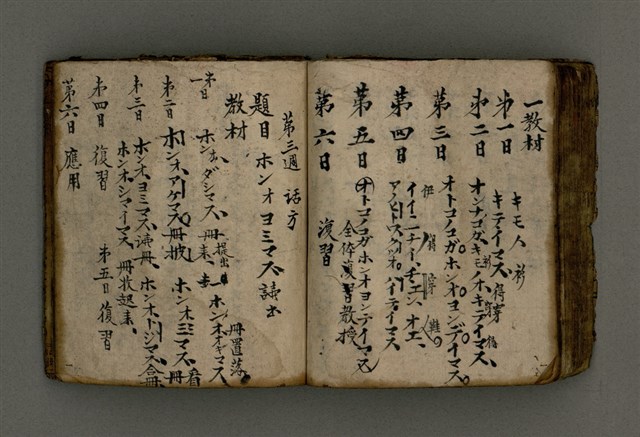 一教材
第一日 キモノ 衫
キテイマス 得穿
第二日 オンナコガ、キモノオキテイマス、
第三日 オトコノコガ、ホンオ、ヨンデイマス。
第四日 イイニチイチエン、オエ、
第五日 オトコノコガホンオヨンデイマス
全体復習教授
第六日 復習
第三週 話方
題目 ホンオヨミマス 読本
教材
第一日 ホンオ、ダシマス、冊提出来 ホンオオキマス、冊置落去
第二日 ホンオ、アケマス、冊掀 ホンオミマス、看冊
第三日 ホンオ、ヨミマス、読冊、ホンオトジマス、合冊
ホンオシマイマス 冊收起来、
第四日 復習 第五日 復習
第六日 應用